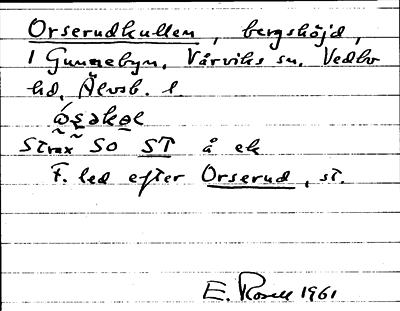 Orserudkullen, bergshöjd,
i Gunnebyn, Vårviks sn, Vedbo
hd, Älvsb. l
Strax SO ST å ek
F. led efter Orserud, st.
E. Rosell 1961